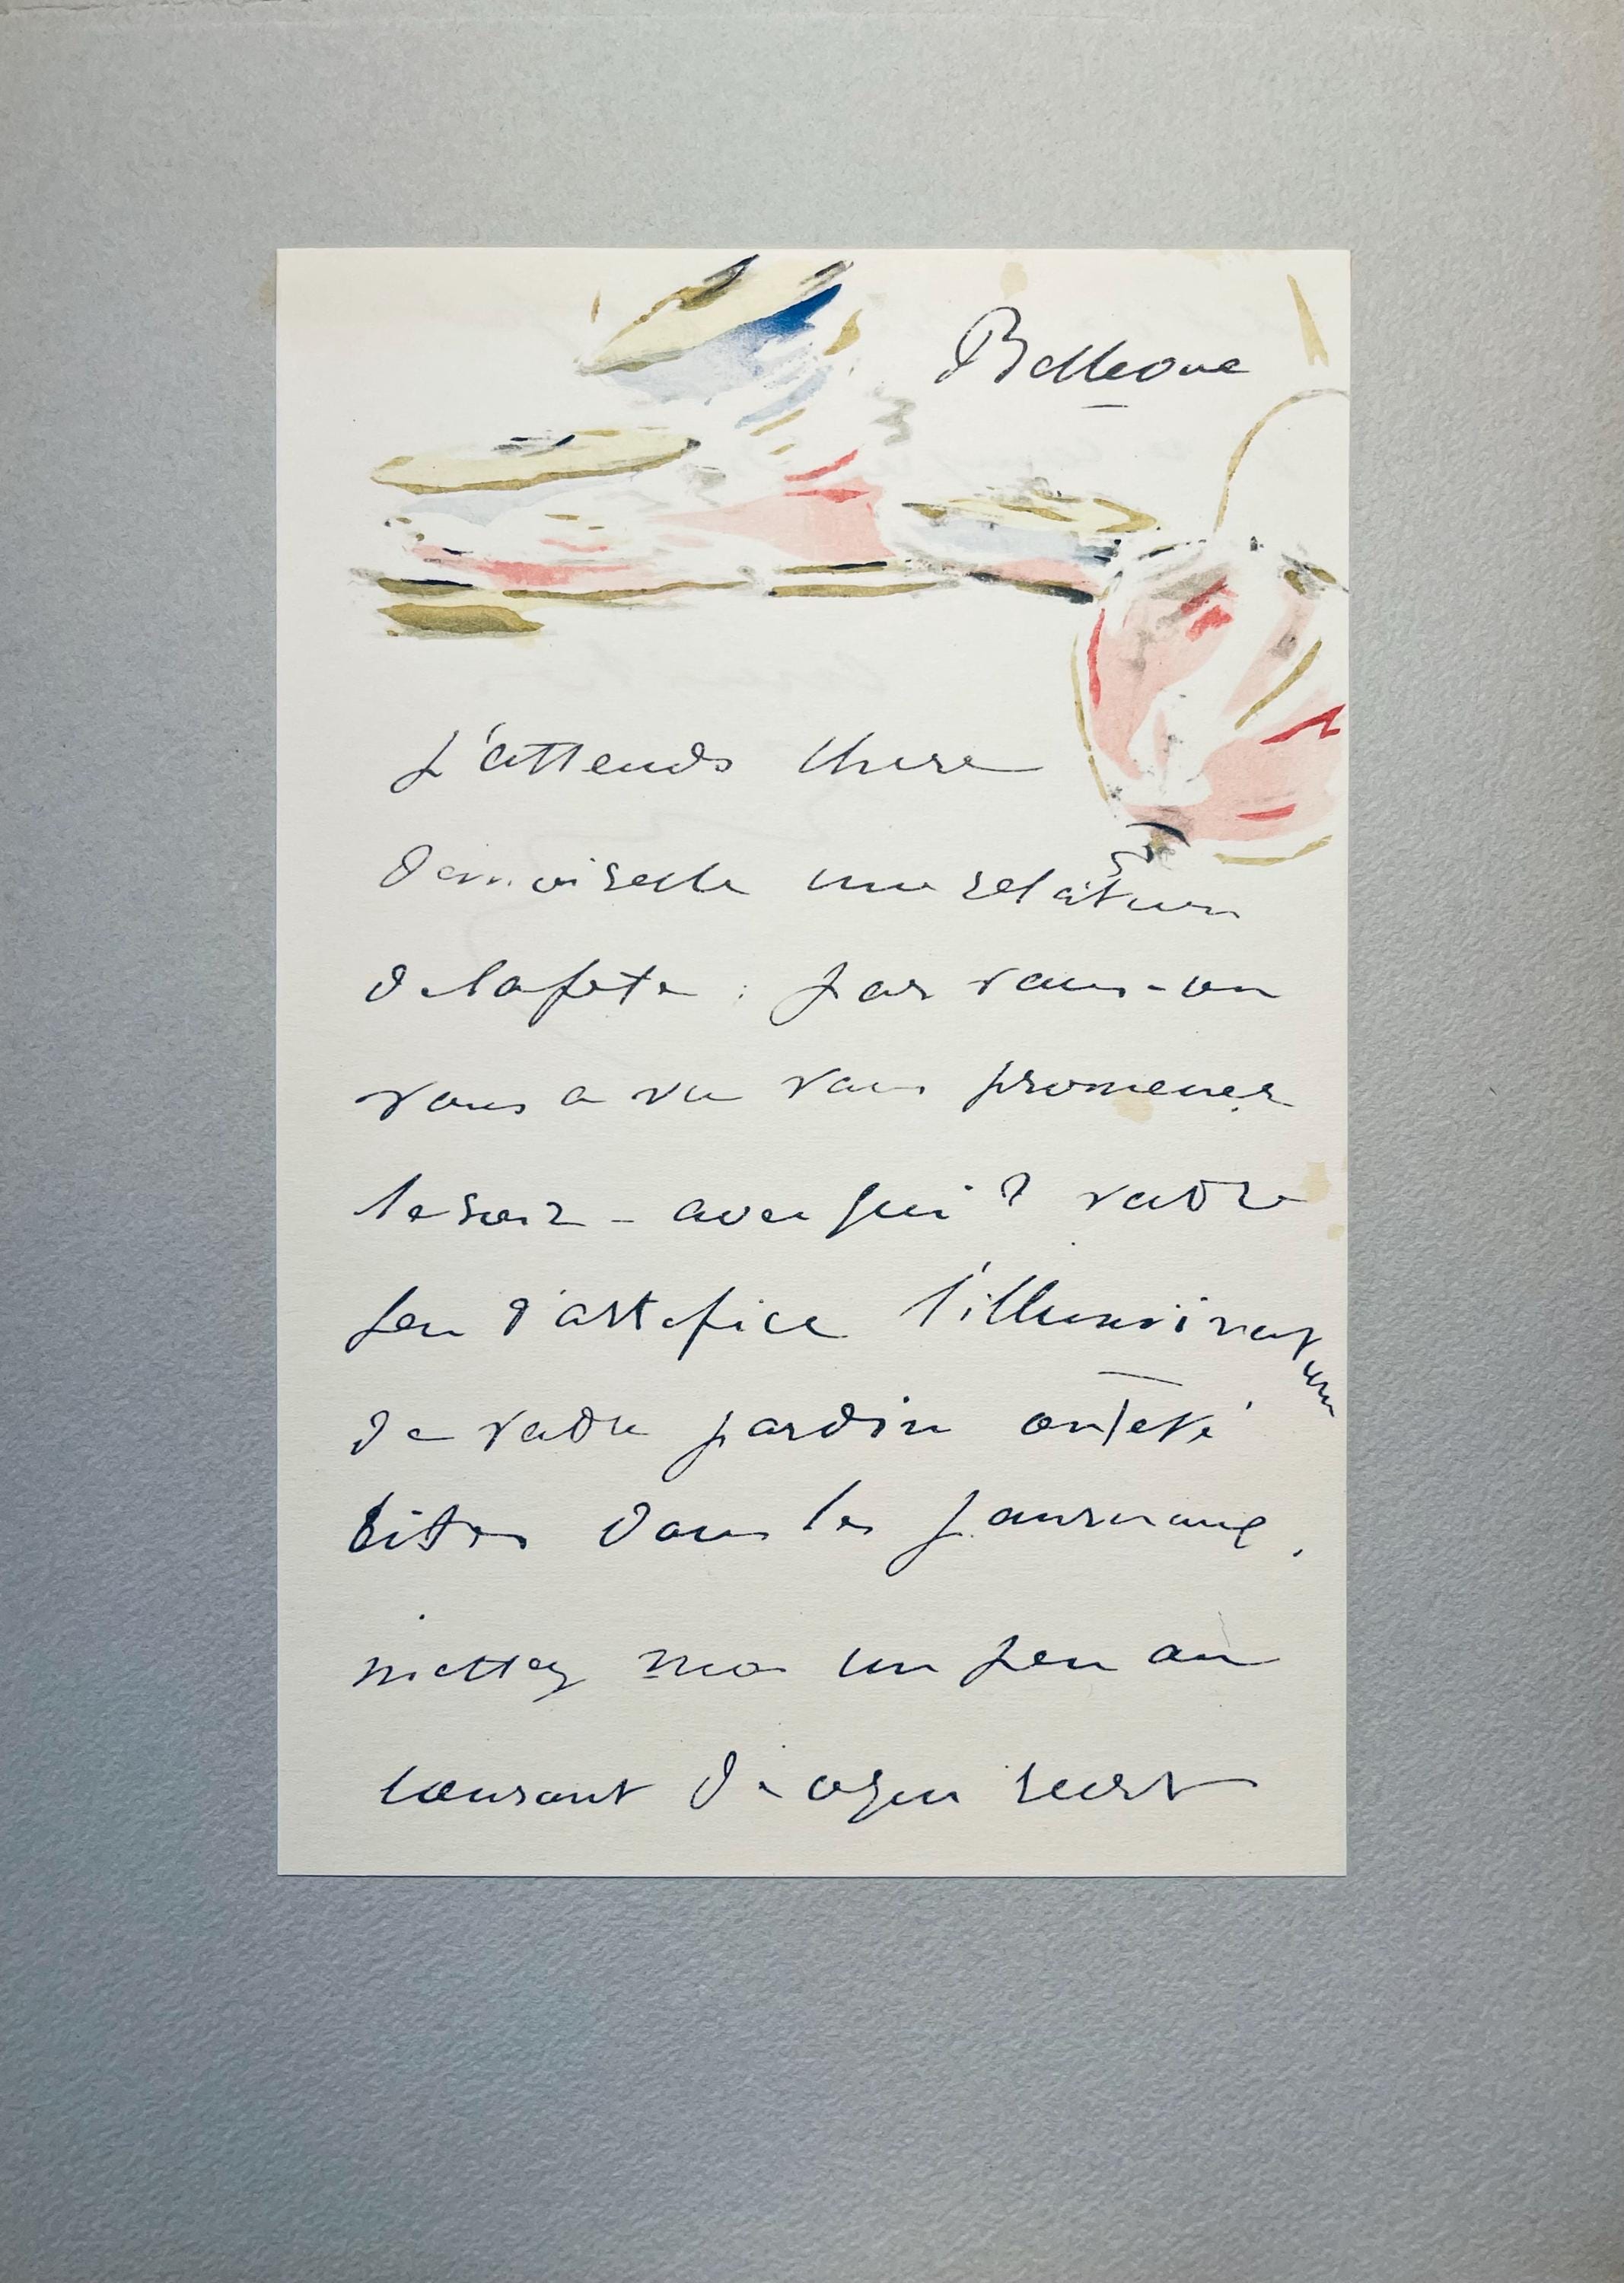 Bellevue
J'attends chere
demoiselle une relation
de la fete : par vous-on
vous a vu vous promener
le soir - avec qui ? votre
feu d'artifice l'illumination
de votre jardin ont été
cités dans les journaux.
mettez moi un peu au
courant de ce qui s'est